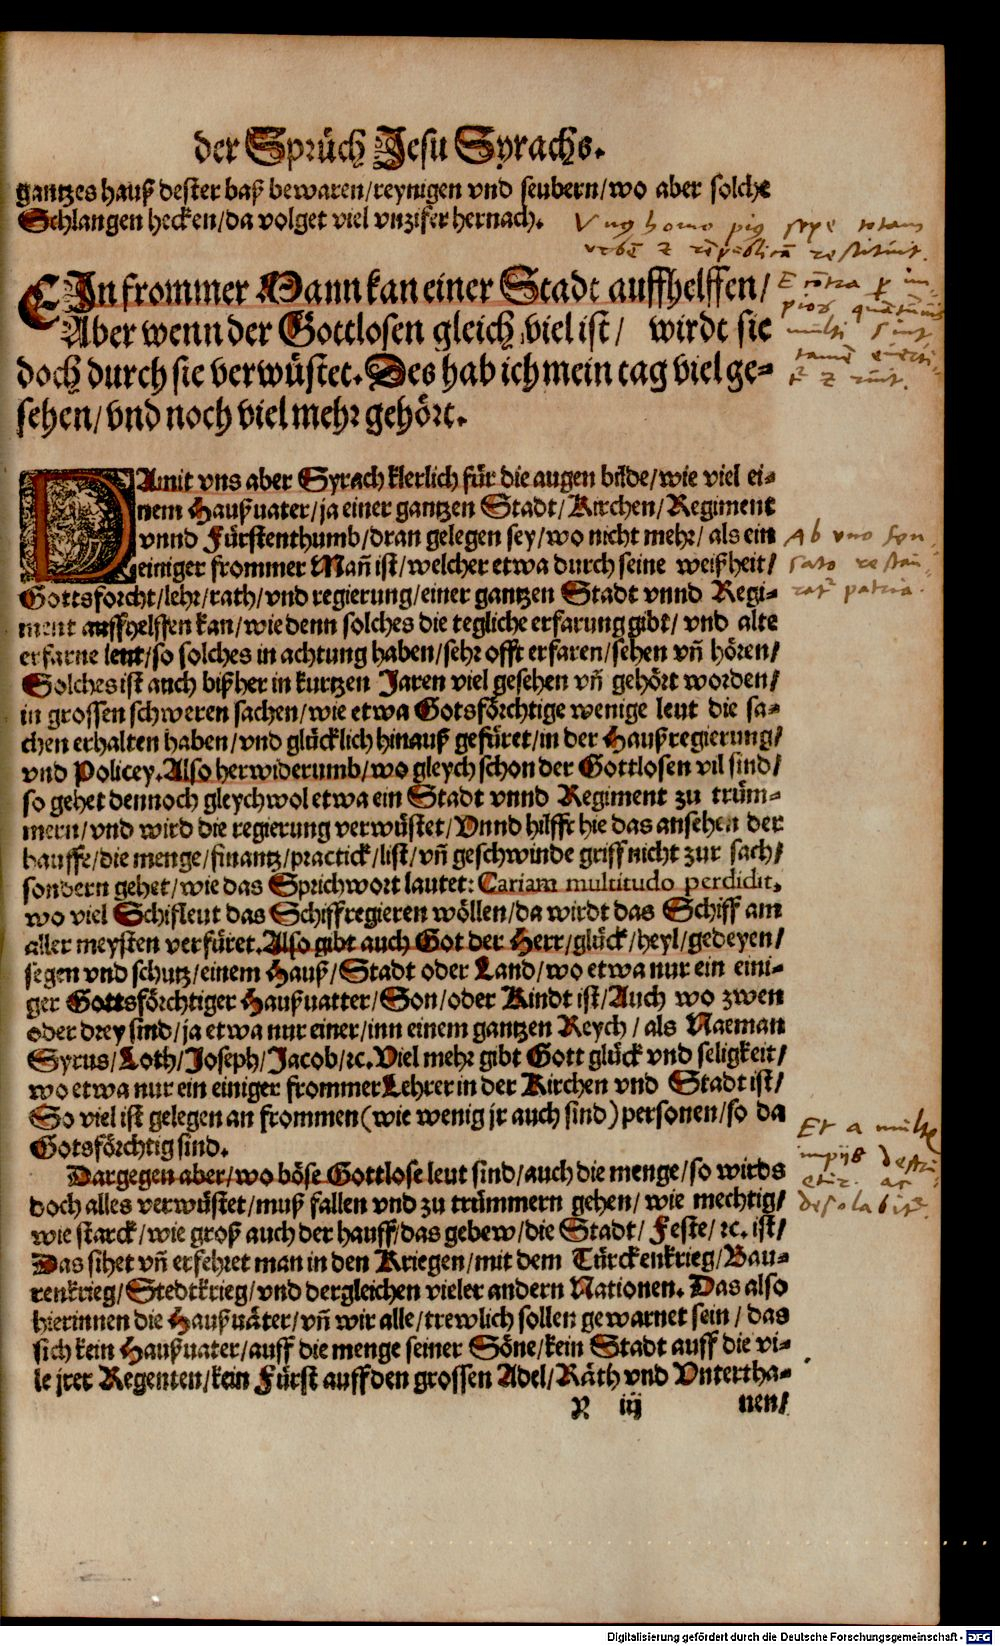 der Sprüch Jesu Syrachs.
gantzes hauß dester baß bewaren/reynigen vnd seubern/wo aber solche
Schlangen hecken/da volget viel vnzifer hernach.
homo pius sepe totam
restituit.
EIn frommer Mann kan einer Stadt auffhelffen/
Aber wenn der Gottlosen gleich viel ist/ wirdt sie
doch durch sie verwüstet. Des hab ich mein tag viel ge-
sehen/vnd noch viel mehr gehört.
multi sint
DAmit vns aber Syrach klerlich für die augen bilde/wie viel ei-
nem Haußuater/ja einer gantzen Stadt/Kirchen/Regiment
vnnd Fürstenthumb/dran gelegen sey/wo nicht mehr/als ein
einiger frommer Mañ ist/welcher etwa durch seine weißheit/
Gottsforcht/lehr/rath/vnd regierung/einer gantzen Stadt vnnd Regi-
ment auffhelffen kan/wie denn solches die tegliche erfarung gibt/vnd alte
erfarne leut/so solches in achtung haben/sehr offt erfaren/sehen vñ hören/
Solches ist auch bißher in kurtzen Jaren viel gesehen vñ gehört worden/
in grossen schweren sachen/wie etwa Gotsförchtige wenige leut die sa-
chen erhalten haben/vnd glücklich hinauß gefüret/in der Haußregierung/
vnd Policey. Also herwiderumb/wo gleych schon der Gottlosen vil sind/
so gehet dennoch gleychwol etwa ein Stadt vnnd Regiment zu trüm-
mern/vnd wird die regierung verwüstet/Vnnd hilfft hie das ansehen der
hauffe/die menge/finantz/practick/list/vñ geschwinde griff nicht zur sach/
sondern gehet/wie das Sprichwort lautet: Cariam multitudo perdidit.
wo viel Schifleut das Schiff regieren wöllen/da wirdt das Schiff am
aller meysten verfüret. Also gibt auch Got der Herr/glück/heyl/gedeyen/
segen vnd schutz/einem Hauß/Stadt oder Land/wo etwa nur ein eini-
ger Gottsförchtiger Haußuatter/Son/oder Kindt ist/Auch wo zwen
oder drey sind/ja etwa nur einer/inn einem gantzen Reych/als Naeman
Syrus/Loth/Joseph/Jacob/ꝛc. Viel mehr gibt Gott glück vnd seligkeit/
wo etwa nur ein einiger frommer Lehrer in der Kirchen vnd Stadt ist/
So viel ist gelegen an frommen (wie wenig jr auch sind) personen/so da
Gotsförchtig sind.
Dargegen aber/wo böse Gottlose leut sind/auch die menge/so wirds
doch alles verwüstet/muß fallen vnd zu trümmern gehen/wie mechtig/
wie starck/wie groß auch der hauff/das gebew/die Stadt/Feste/ꝛc. ist/
Das sihet vñ erfehret man in den Kriegen/mit dem Türckenkrieg/Bau-
renkrieg/Stedtkrieg/vnd dergleichen vieler andern Nationen. Das also
hierinnen die Haußuäter/vñ wir alle/trewlich sollen gewarnet sein/das
sich kein Haußuater/auff die menge seiner Söne/kein Stadt auff die vi-
le jrer Regenten/kein Fürst auff den grossen Adel/Räth vnd Vntertha-
R iij nen/
Ab uno
patria.
Et a
Digitalisierung gefördert durch die Deutsche Forschungsgemeinschaft - DFG